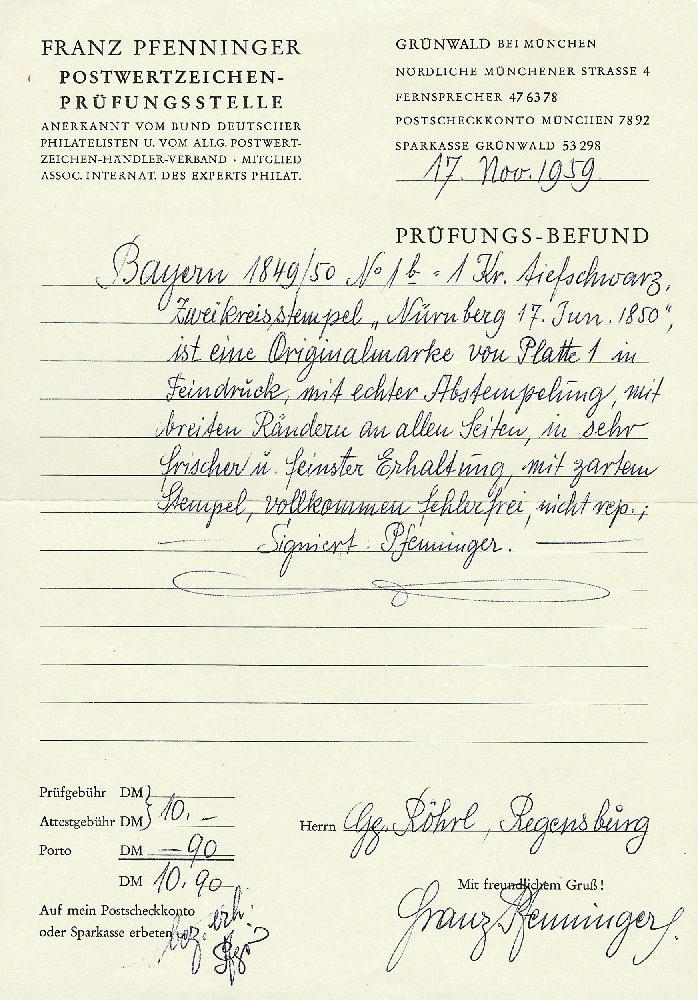 FRANZ PFENNINGER
POSTWERTZEICHEN-
PRÜFUNGSSTELLE
ANERKANNT VOM BUND DEUTSCHER
PHILATELISTEN U. VOM ALLG. POSTWERT-
ZEICHEN-HÄNDLER-VERBAND · MITGLIED
ASSOC. INTERNAT. DES EXPERTS PHILAT.
GRÜNWALD BEI MÜNCHEN
NÖRDLICHE MÜNCHENER STRASSE 4
FERNSPRECHER 476378
POSTSCHECKKONTO MÜNCHEN 7892
SPARKASSE GRÜNWALD 53298
17. Nov. 1959
PRÜFUNGS-BEFUND
Bayern 1849/50 No 1b - 1 Kr. tiefschwarz,
Zweikreisstempel „Nürnberg 17. Jun. 1850“,
ist eine Originalmarke von Platte 1 in
Feindruck, mit echter Abstempelung, mit
breiten Rändern an allen Seiten, in sehr
frischer u. feinster Erhaltung, mit zartem
Stempel, vollkommen fehlerfrei, nicht rep.;
Signiert: Pfenninger.
Prüfgebühr DM
Attestgebühr DM } 10.-
Porto DM -90
DM 10.90
Auf mein Postscheckkonto
oder Sparkasse erbeten
bez. erh.
Herrn Gg. Röhrl, Regensburg
Mit freundlichem Gruß!
Franz Pfenninger